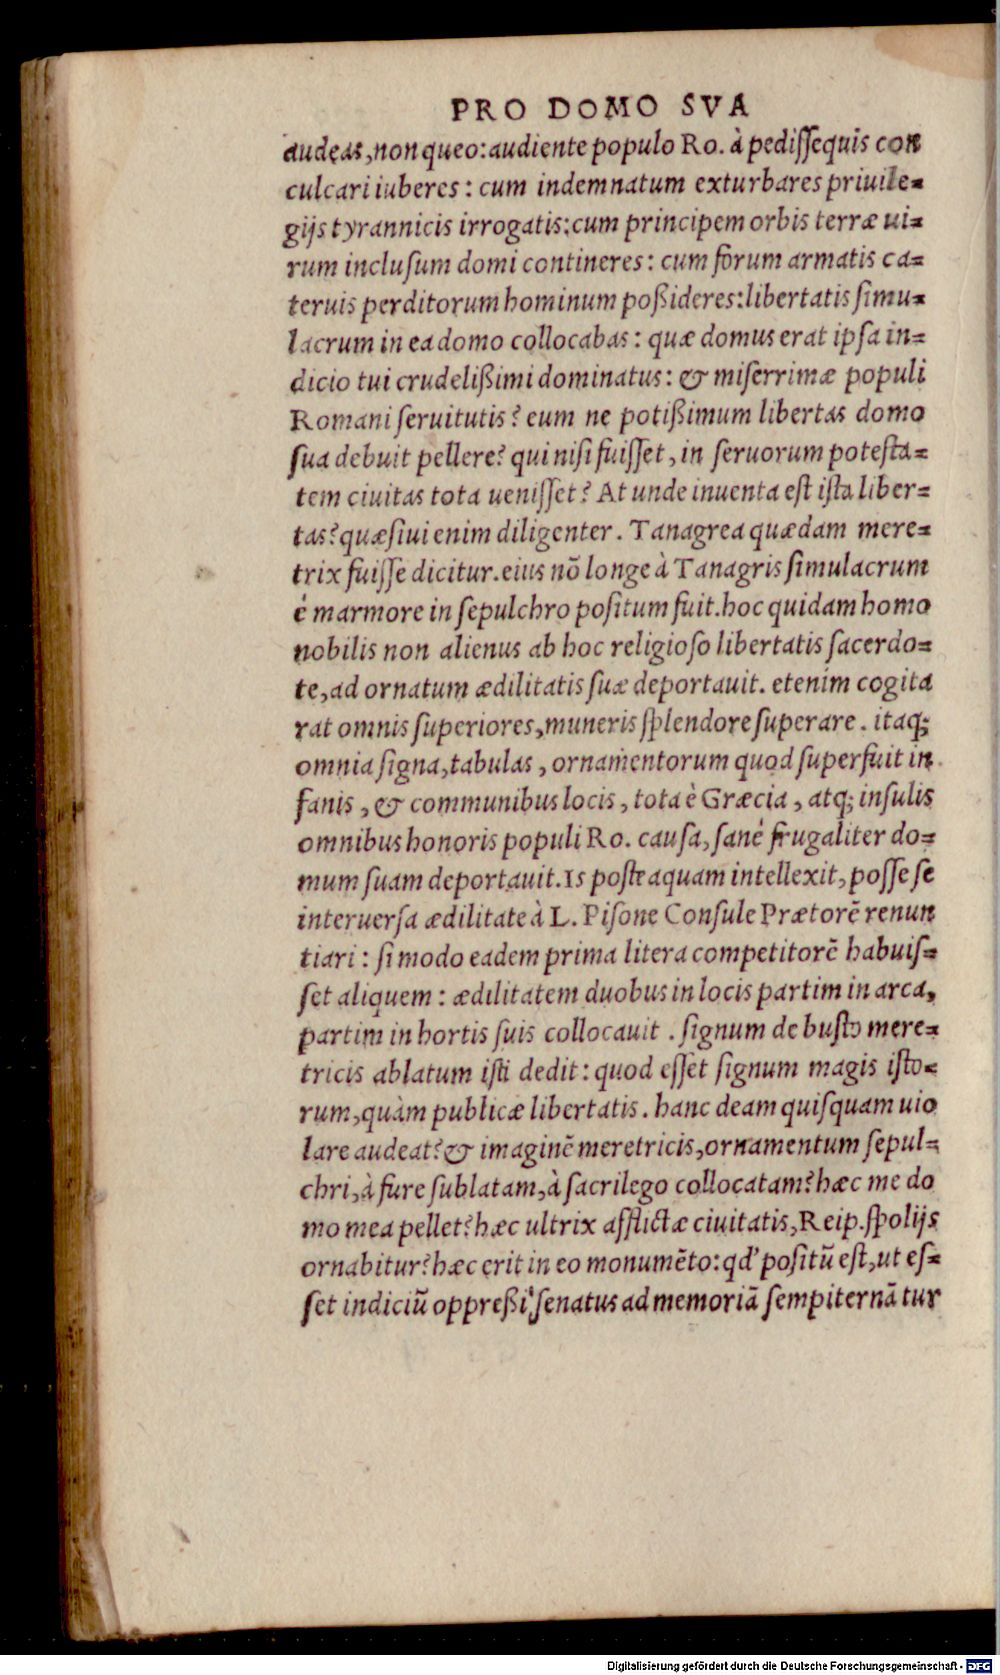 PRO DOMO SVA
audeas, non queo: audiente populo Ro. à pedissequis con
culcari iuberes: cum indemnatum exturbares priuile=
gijs tyrannicis irrogatis: cum principem orbis terræ ui=
rum inclusum domi contineres: cum forum armatis ca=
teruis perditorum hominum poßideres: libertatis simu=
lacrum in ea domo collocabas: quæ domus erat ipsa in=
dicio tui crudelißimi dominatus: & miserrimæ populi
Romani seruitutis? eum ne potißimum libertas domo
sua debuit pellere? qui nisi fuisset, in seruorum potesta=
tem ciuitas tota uenisset? At unde inuenta est ista liber=
tas? quæsiui enim diligenter. Tanagrea quædam mere=
trix fuisse dicitur. eius nõ longe à Tanagris simulacrum
é marmore in sepulchro positum fuit. hoc quidam homo
nobilis non alienus ab hoc religioso libertatis sacerdo=
te, ad ornatum ædilitatis suæ deportauit. etenim cogita
rat omnis superiores, muneris splendore superare. itaq;
omnia signa, tabulas, ornamentorum quod superfuit in
fanis, & communibus locis, tota è Græcia, atq; insulis
omnibus honoris populi Ro. causa, sané frugaliter do=
mum suam deportauit. is posteaquam intellexit, posse se
interuersa ædilitate à L. Pisone Consule Prætorẽ renun
tiari: si modo eadem prima litera competitorẽ habuis=
set aliquem: ædilitatem duobus in locis partim in arca,
partim in hortis suis collocauit. signum de busto mere=
tricis ablatum isti dedit: quod esset signum magis isto=
rum, quàm publicæ libertatis. hanc deam quisquam uio
lare audeat? & imaginẽ meretricis, ornamentum sepul=
chri, à fure sublatam, à sacrilego collocatam? hæc me do
mo mea pellet? hæc ultrix afflictæ ciuitatis, Reip. spolijs
ornabitur? hæc erit in eo monumẽto: qd' positũ est, ut es=
set indiciũ oppreßi senatus ad memoriã sempiternã tur
Digitalisierung gefördert durch die Deutsche Forschungsgemeinschaft - DFG